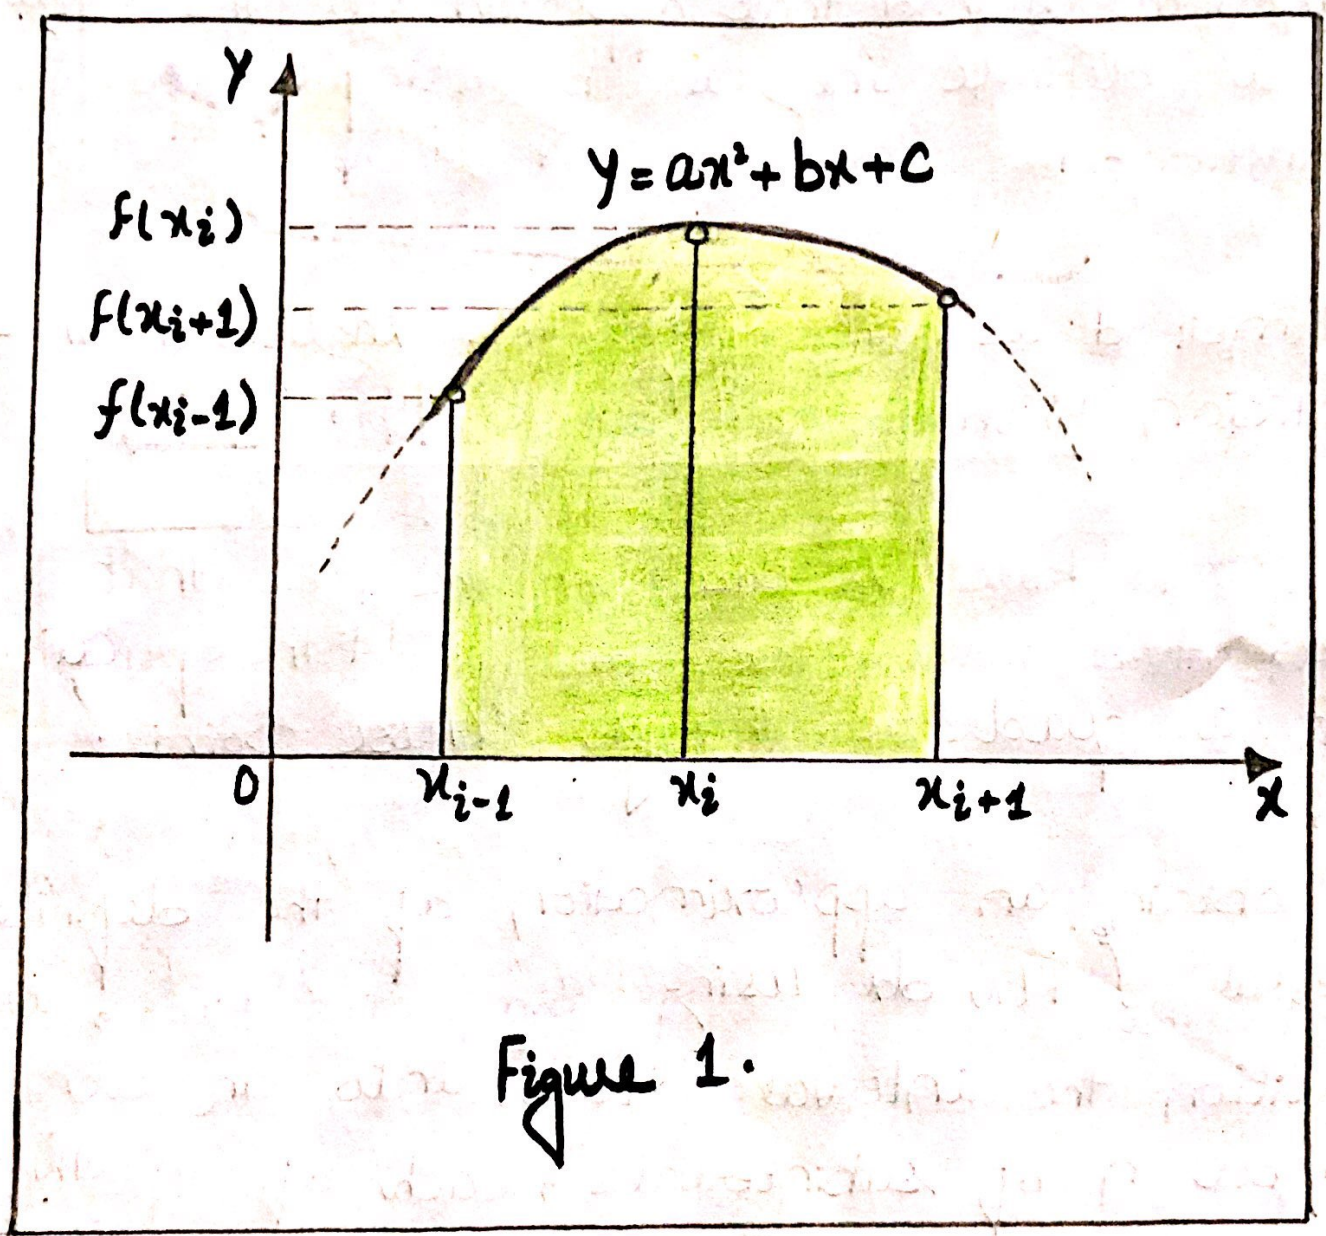 Y
y = ax² + bx + c
f(xᵢ)
f(xᵢ+1)
f(xᵢ-1)
0
xᵢ₋₁
xᵢ
xᵢ₊₁
X
Figure 1.